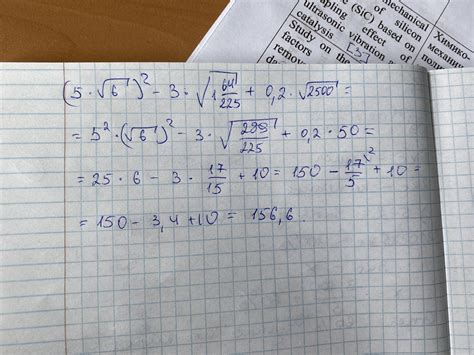 mechanical
of silicon
(SiC) based on
effect of
ultrasonic vibration
catalysis [3]
Study on the
factors
Химико-
(5 · √6)² - 3 · √(1 64/225) + 0,2 · √2500 =
= 5² · (√6)² - 3 · √(289/225) + 0,2 · 50 =
= 25 · 6 - 3 · 17/15 + 10 = 150 - 17\²/5 + 10 =
= 150 - 3,4 + 10 = 156,6.